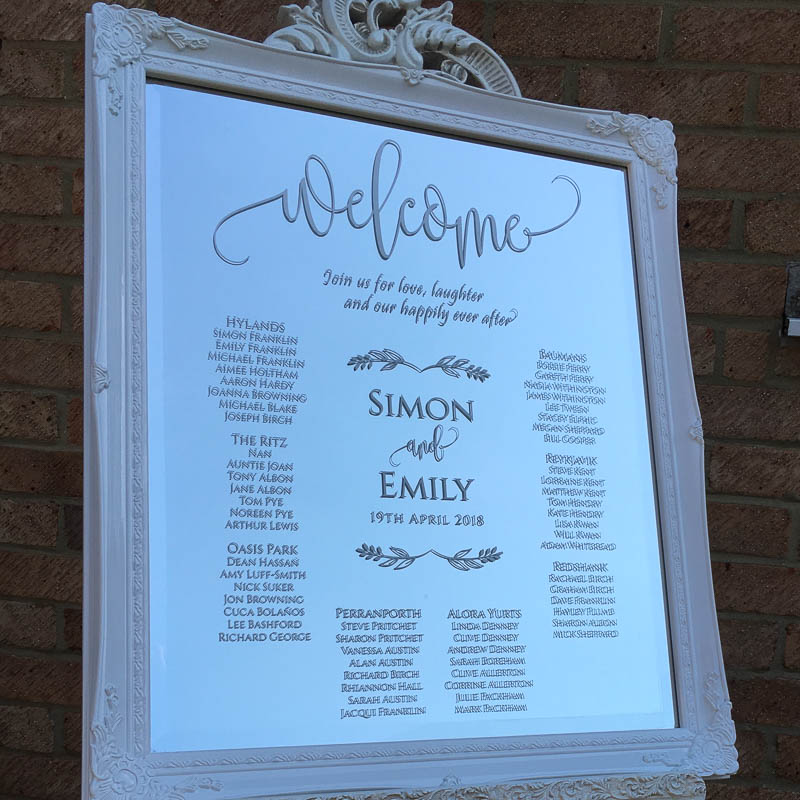 welcome
Join us for love, laughter
and our happily ever after
HYLANDS
SIMON FRANKLIN
EMILY FRANKLIN
MICHAEL FRANKLIN
AIMEE HOLTHAM
AARON HARDY
JOANNA BROWNING
MICHAEL BLAKE
JOSEPH BIRCH
THE RITZ
NAN
AUNTIE JOAN
TONY ALBON
JANE ALBON
TOM PYE
NOREEN PYE
ARTHUR LEWIS
OASIS PARK
DEAN HASSAN
AMY LUFF-SMITH
NICK SUKER
JON BROWNING
CUCA BOLAÑOS
LEE BASHFORD
RICHARD GEORGE
SIMON
and
EMILY
19TH APRIL 2018
PERRANPORTH
STEVE PRITCHET
SHARON PRITCHET
VANESSA AUSTIN
ALAN AUSTIN
RICHARD BIRCH
RHIANNON HALL
SARAH AUSTIN
JACQUI FRANKLIN
ALORA YURTS
LINDA DENNEY
CLIVE DENNEY
ANDREW DENNEY
SARAH BOREHAM
CLIVE ALLERTON
CORRINE ALLERTON
JULIE PACKHAM
MARK PACKHAM
BAUMANS
BOBBIE PERRY
GARETH PERRY
NADIA WITHINGTON
JAMES WITHINGTON
LEE TWEEN
STACEY ELPHIC
MEGAN SHEPPARD
BILL COOPER
REYKJAVIK
STEVE KENT
LORRAINE KENT
MATTHEW KENT
TOM HENDRY
KATE HENDRY
LISA KWAN
WILL KWAN
ADAM WHITBREAD
REDSHANK
RACHAEL BIRCH
GRAHAM BIRCH
DAVE FRANKLIN
HAYLEY PULME
SHARON ALBON
MICK SHEPPARD